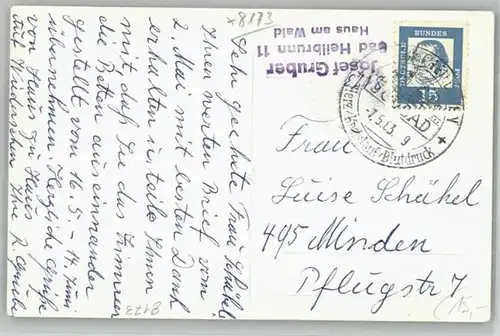 *8173
Josef Gruber
Bad Heilbrunn 11
Haus am Wald
DEUTSCHE BUNDESPOST
15
BAD
-7.5.63.-9
Herz-Kreislauf-Blutdruck
Sehr geehrte Frau Schäkel
Ihren werten Brief vom
2. Mai mit besten Dank
erhalten u. teile Ihnen
mit, daß Sie das Zimmer
die Betten auseinander
gestellt vom 16.5. - 14. Juni
übernehmen. Herzliche Grüße
von Haus zu Haus
auf Wiedersehen Ihr R. Gruber
Frau
Luise Schäkel
495 Minden
Pflugstr 7
8173
12,-